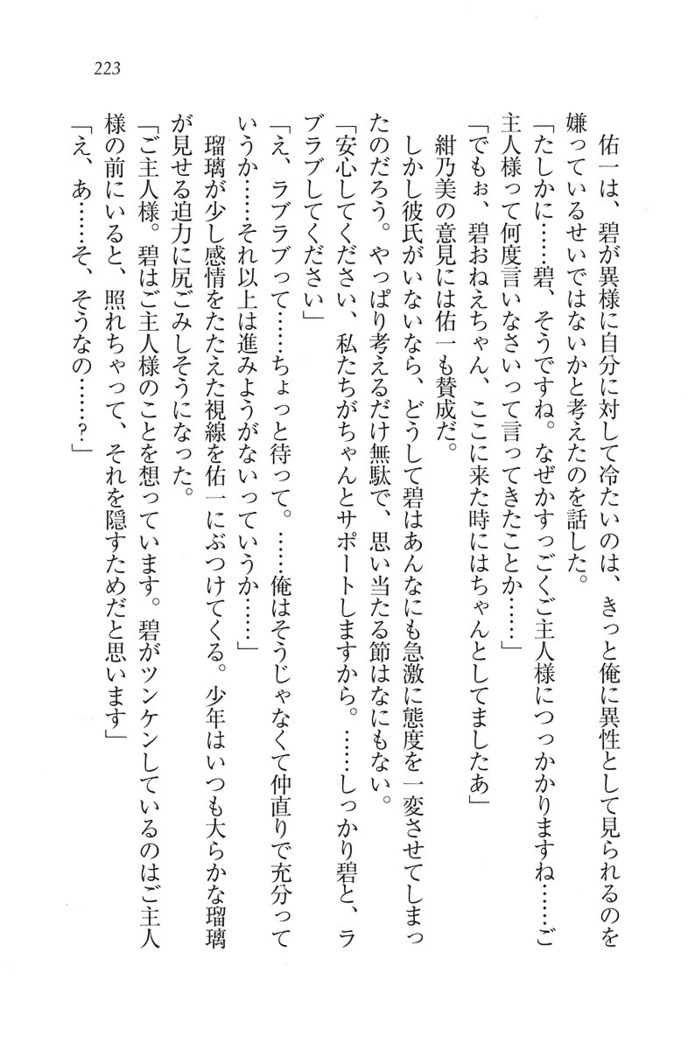 223
佑一は、碧が異様に自分に対して冷たいのは、きっと俺に異性として見られるのを
嫌っているせいではないかと考えたのを話した。
「たしかに……碧、そうですね。なぜかすっごくご主人様につっかかりますね……ご
主人様って何度言いなさいって言ってきたことか……」
「でもぉ、碧おねえちゃん、ここに来た時にはちゃんとしてましたあ」
紺乃美の意見には佑一も賛成だ。
しかし彼氏がいないなら、どうして碧はあんなにも急激に態度を一変させてしまっ
たのだろう。やっぱり考えるだけ無駄で、思い当たる節はなにもない。
「安心してください、私たちがちゃんとサポートしますから。……しっかり碧と、ラ
ブラブしてください」
「え、ラブラブって……ちょっと待って。……俺はそうじゃなくて仲直りで充分って
いうか……それ以上は進みようがないっていうか……」
瑠璃が少し感情をたたえた視線を佑一にぶつけてくる。少年はいつも大らかな瑠璃
が見せる迫力に尻ごみしそうになった。
「ご主人様。碧はご主人様のことを想っています。碧がツンケンしているのはご主人
様の前にいると、照れちゃって、それを隠すためだと思います」
「え、あ……そ、そうなの……？」